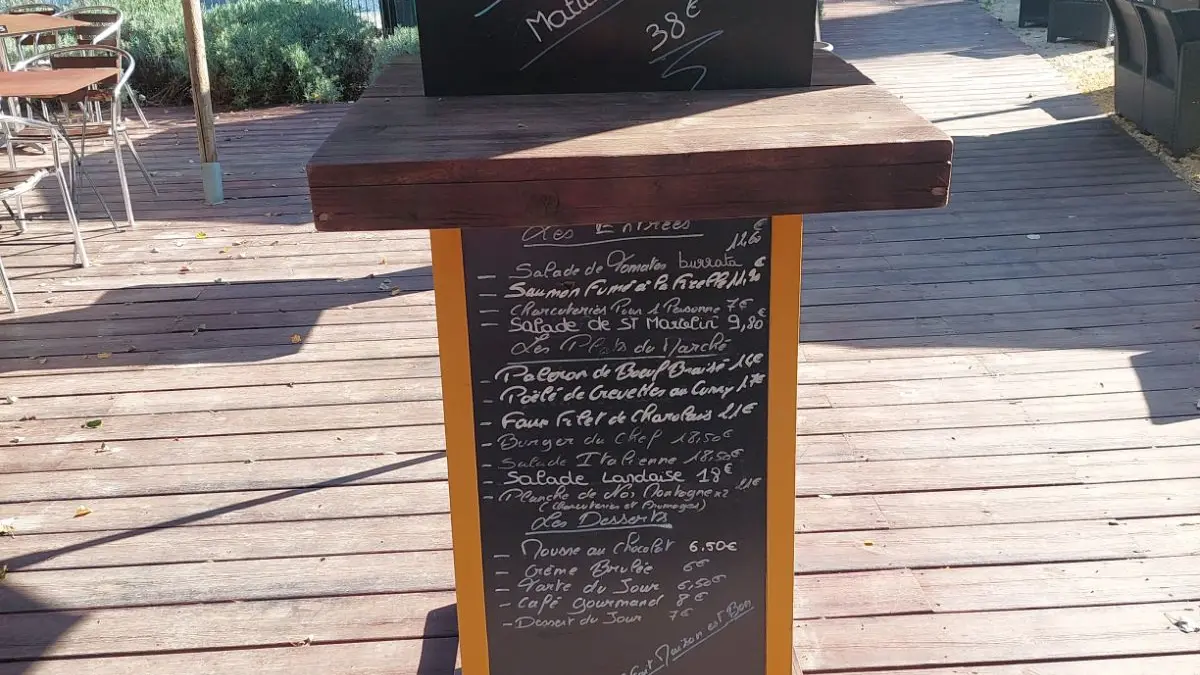 38€
Les Entrées €
12,60
- Salade de Tomates burrata €
- Saumon Fumé à la Ficelle 11,90
- Charcuteries Pour 1 Personne 7€ €
- Salade de St Marcelin 9,80
Les Plats du Marché
- Paleron de Boeuf Braisé 16€
- Poêlé de Crevettes au Curry 17€
- Faux Filet de Charolais 21€
- Burger du Chef 18,50€
- Salade Italienne 18,50€
- Salade Landaise 18€
- Planche de Nos Montagne x2 21€
(Charcuteries et Fromages)
Les Desserts
- Mousse au chocolat 6.50€
- Crème Brulée 6€
- Tarte du Jour 6,50€
- Café gourmand 8€
- Dessert du Jour 7€
Fait Maison est Bon